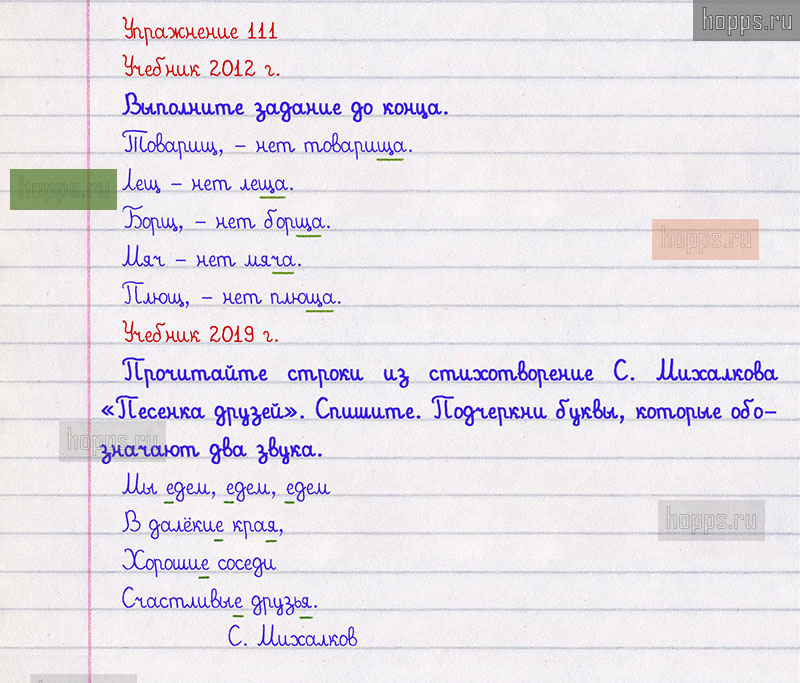 hopps.ru
Упражнение 111
Учебник 2012 г.
Выполните задание до конца.
Товарищ, – нет товарища.
Лещ – нет леща.
hopps.ru
Борщ, – нет борща.
hopps.ru
Мяч – нет мяча.
Плющ, – нет плюща.
Учебник 2019 г.
Прочитайте строки из стихотворение С. Михалкова
«Песенка друзей». Спишите. Подчеркни буквы, которые обо-
hopps.ru
значают два звука.
Мы едем, едем, едем
В далёкие края,
hopps.ru
Хорошие соседи
Счастливые друзья.
С. Михалков